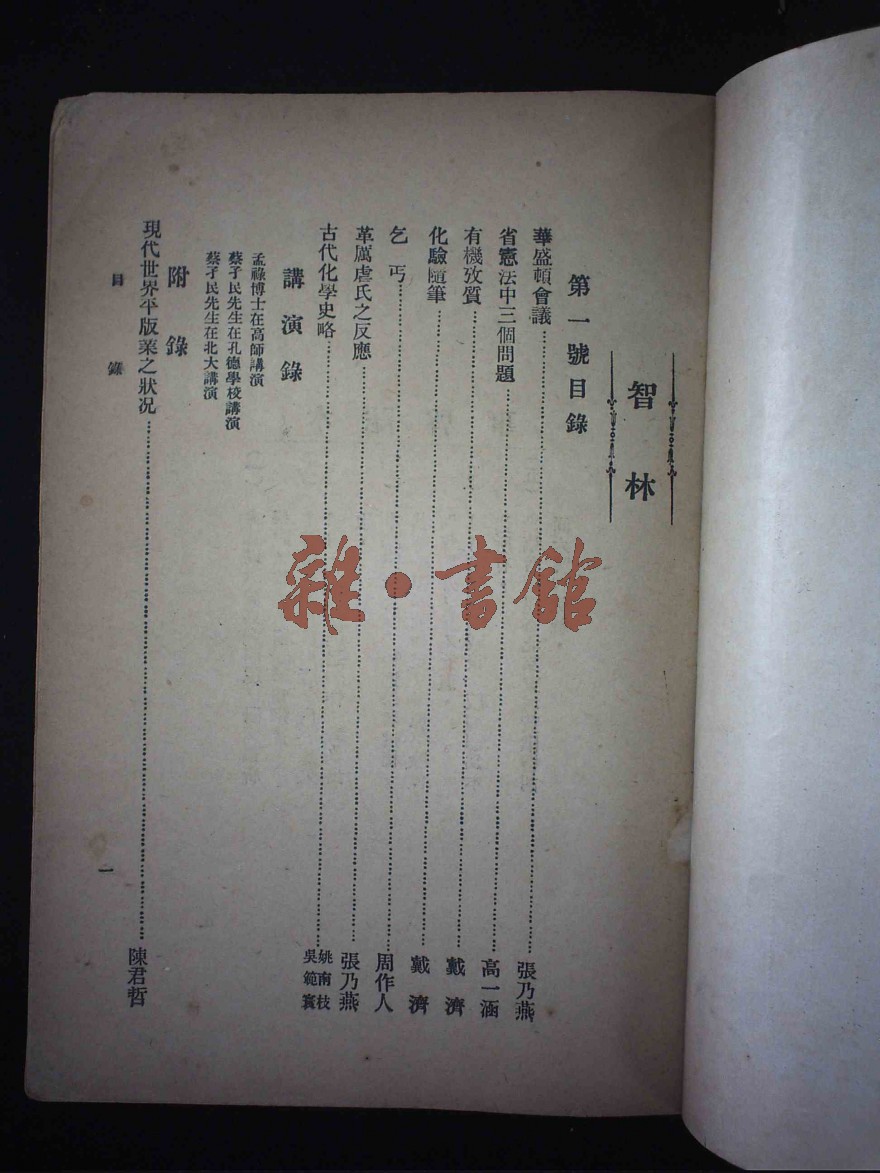 智林
第一號目錄
華盛頓會議……張乃燕
省憲法中三個問題……高一涵
有機攷質……戴濟
化驗隨筆……戴濟
乞丐……周作人
革厲虐氏之反應……張乃燕
古代化學史略……姚南枝 吳範寰
講演錄
孟祿博士在高師講演
蔡孑民先生在孔德學校講演
蔡孑民先生在北大講演
附錄
現代世界平版業之狀况……陳君哲
目錄
一
雜·書館